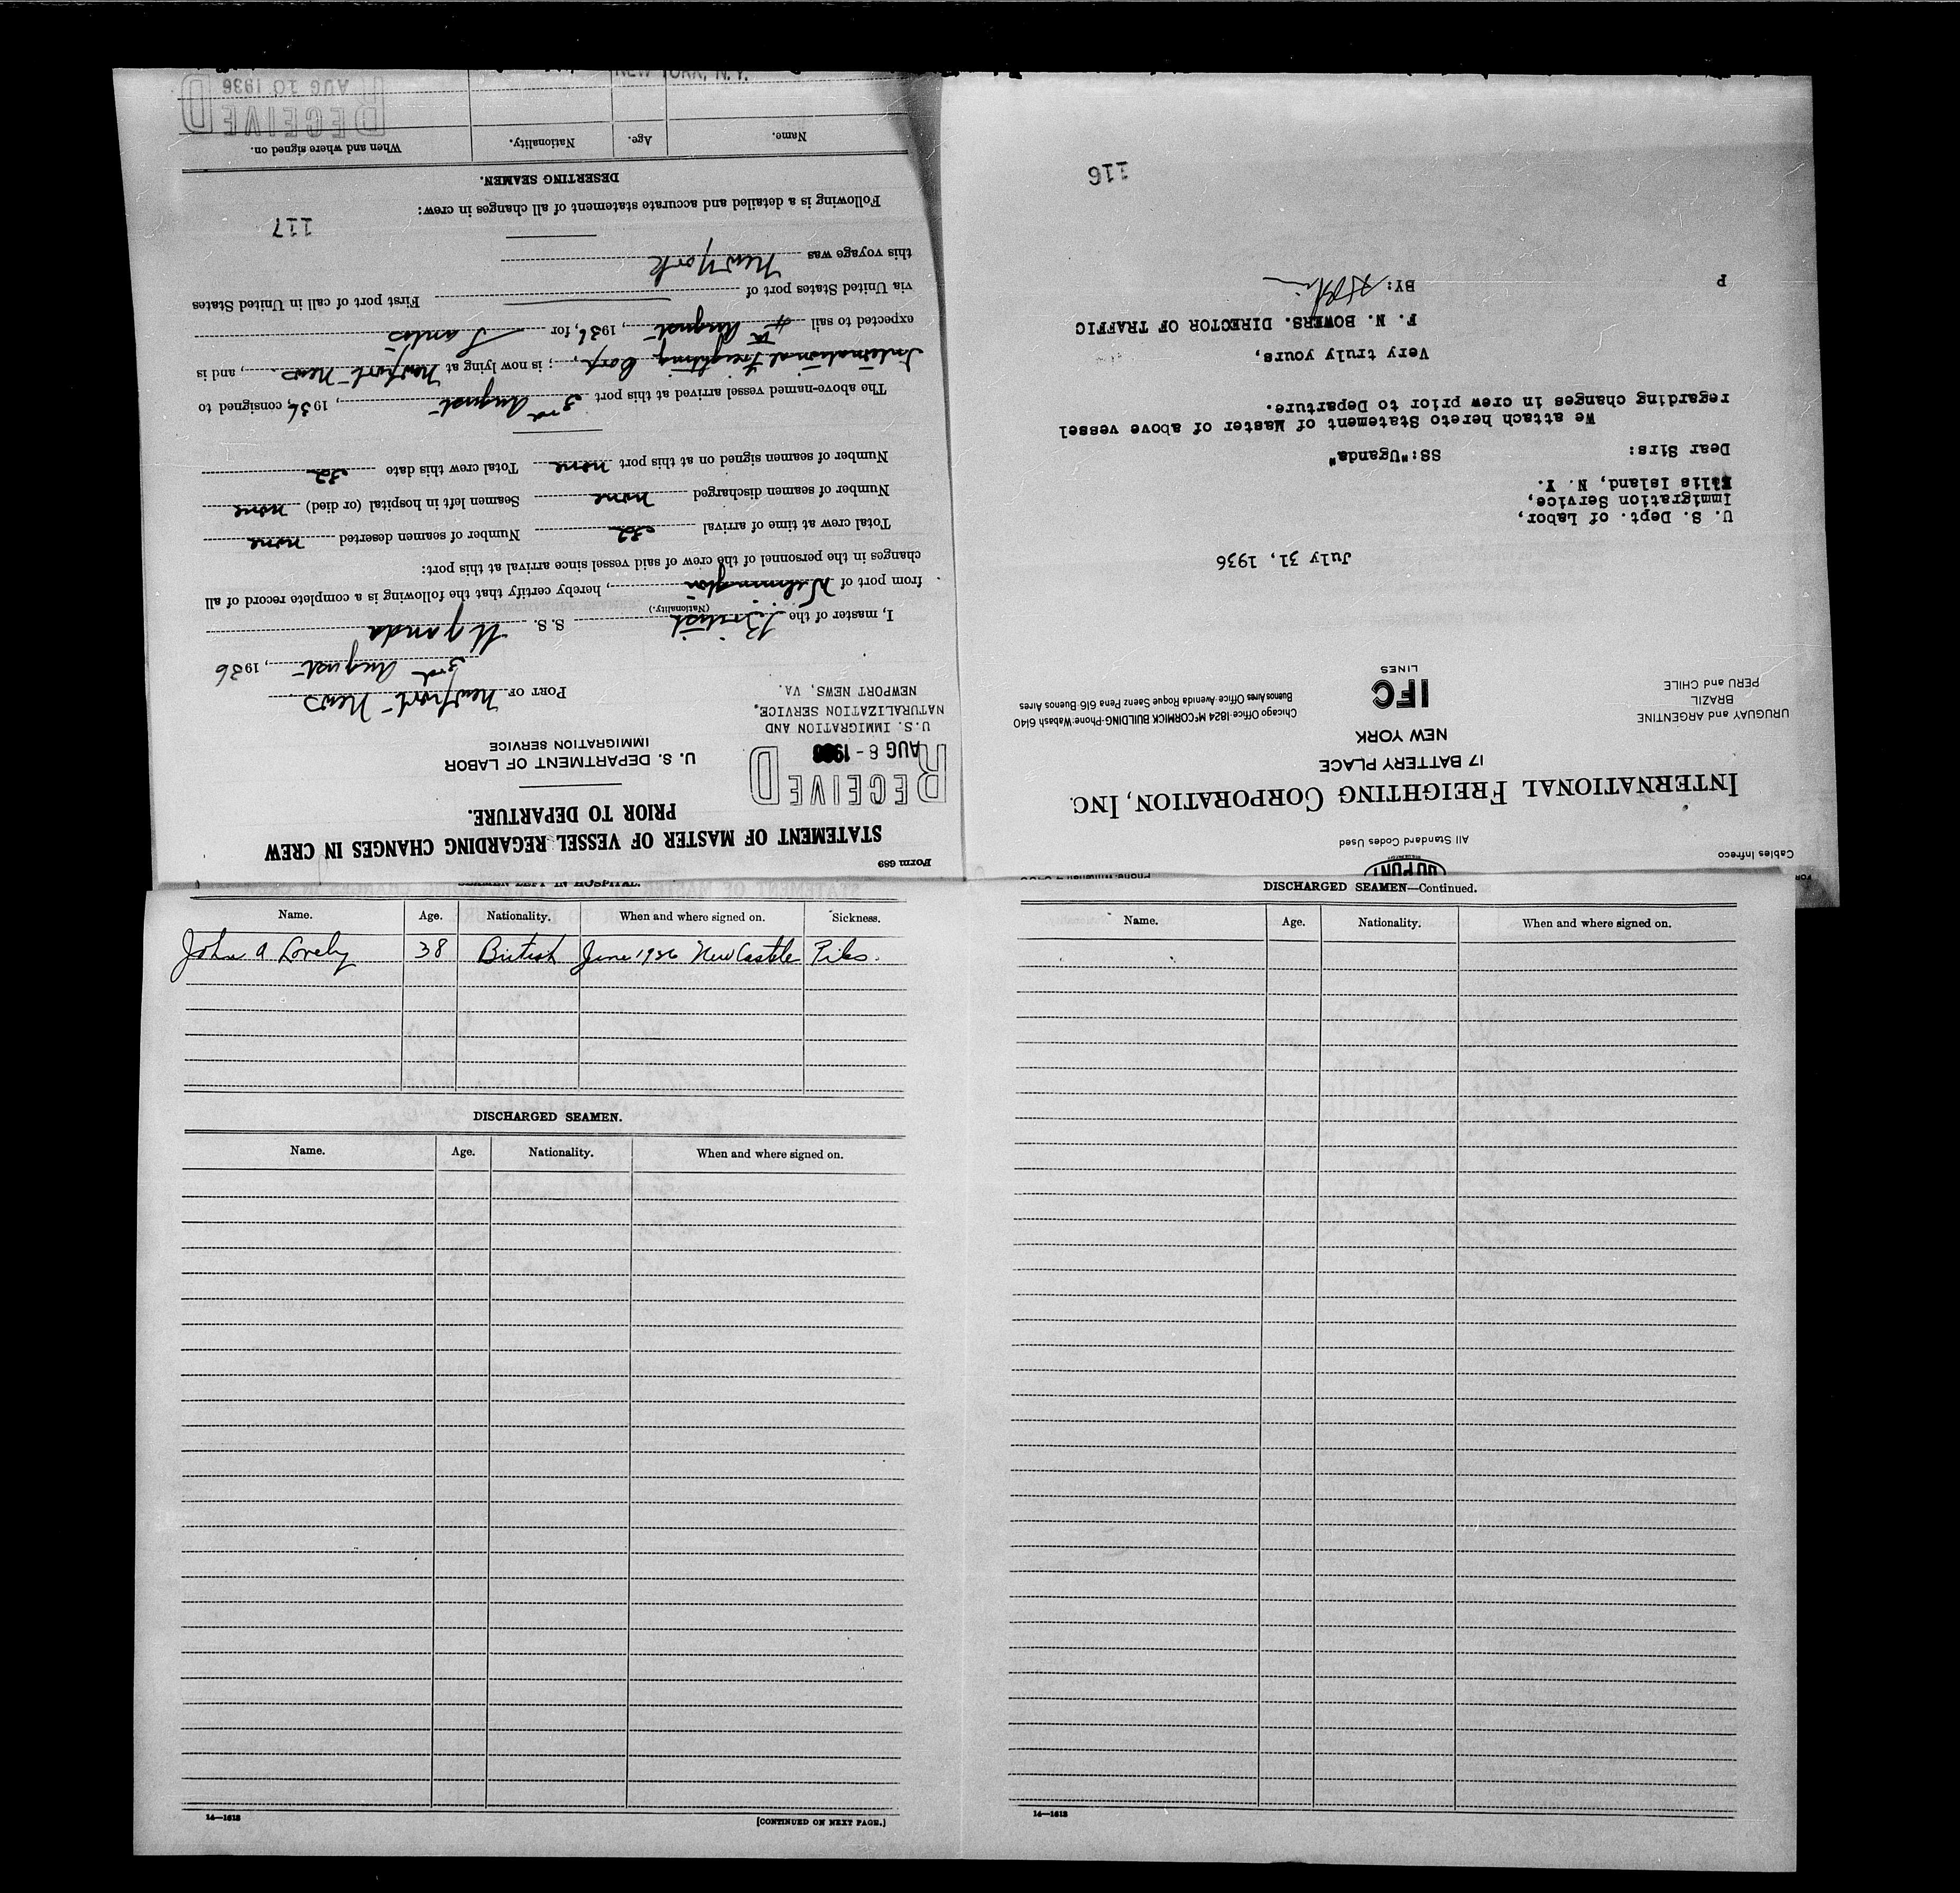 Form 689
STATEMENT OF MASTER OF VESSEL REGARDING CHANGES IN CREW
PRIOR TO DEPARTURE.
RECEIVED
AUG 6 - 1936
U.S. IMMIGRATION AND
NATURALIZATION SERVICE,
NEWPORT NEWS, VA.
U. S. DEPARTMENT OF LABOR
IMMIGRATION SERVICE
PORT OF Newport News
3rd August, 1936
I, master of the British S. S. Uganda
(Nationality.)
from port of Wilmington, hereby certify that the following is a complete record of all
changes in the personnel of the crew of said vessel since arrival at this port:
Total crew at time of arrival 32 Number of seamen deserted none
Number of seamen discharged none Seamen left in hospital (or died) none
Number of seamen signed on at this port none Total crew this date 32
The above-named vessel arrived at this port 3rd August, 1936, consigned to
International Freighting Corp.; is now lying at Newport News, and is
expected to sail 4th August, 1936, for Santos
via United States port of First port of call in United States
this voyage was New York
117
Following is a detailed and accurate statement of all changes in crew:
DESERTING SEAMEN.
Name. Age. Nationality. When and where signed on.
RECEIVED
AUG 10 1936
NEW YORK, N. Y.
Cables Infreco
DU PONT
All Standard Codes Used
INTERNATIONAL FREIGHTING CORPORATION, INC.
17 BATTERY PLACE
NEW YORK
URUGUAY and ARGENTINE
BRAZIL
PERU and CHILE
IFC
LINES
Chicago Office-1824 McCORMICK BUILDING-Phone-Wabash 6140
Buenos Aires Office-Avenida Roque Saenz Pena 616 Buenos Aires
July 31, 1936
U. S. Dept. of Labor,
Immigration Service,
Ellis Island, N. Y.
Dear Sirs: SS:"Uganda"
We attach hereto Statement of Master of above vessel
regarding changes in crew prior to Departure.
Very truly yours,
F. N. BOWERS. DIRECTOR OF TRAFFIC
BY:
P
116
SEAMEN LEFT IN HOSPITAL.
Name. Age. Nationality. When and where signed on. Sickness.
John A Lovely 38 British June 1936 NewCastle Piles.
DISCHARGED SEAMEN.
Name. Age. Nationality. When and where signed on.
14—1618
[CONTINUED ON NEXT PAGE.]
DISCHARGED SEAMEN—Continued.
Name. Age. Nationality. When and where signed on.
14—1618